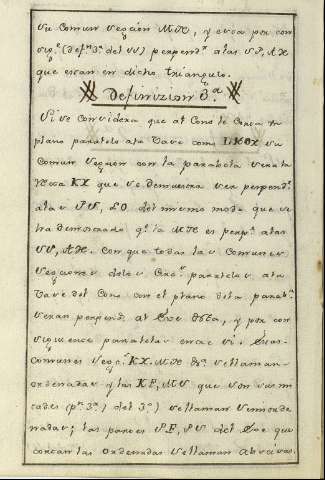 su comun seccion MH, y essa por con
sig.e (def.n 3.a del VI) perpend.r a las VS, AH
que estan en dicho triangulo.
Definizion 3.a
Si se considera que al Cono le corta un
plano paralelo ala Vase como LKOX su
comun seccion con la parabola sera la
recta KX que se demuestra ser perpend.r
ala SV, LO del mismo modo que se
ha demostrado q.e la MH es perp.r alas
VS, AH. Con que todas las comunes
secciones delos Circ.s paralelos ala
Vase del Cono con el plano dela parab.a
seran perpend.s al Exe dela, y por con
siguiente paralelas entre si. Estas
comunes secç.s KX. MH &.a se llaman
ordenadas y las KF, MV que son sus mi
tades (p.n 3.a del 3.o) se llaman semiorde
nadas; las partes SF, SV del Exe que
cortan las Ordenadas se llaman Absisas.